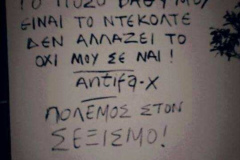 ΤΟ ΠΟΣΟ ΒΑΘΥ ΜΟΥ
ΕΙΝΑΙ ΤΟ ΝΤΕΚΟΛΤΕ
ΔΕΝ ΑΛΛΑΖΕΙ ΤΟ
ΟΧΙ ΜΟΥ ΣΕ ΝΑΙ!
Antifa-X
ΠΟΛΕΜΟΣ ΣΤΟΝ
ΣΕΞΙΣΜΟ!